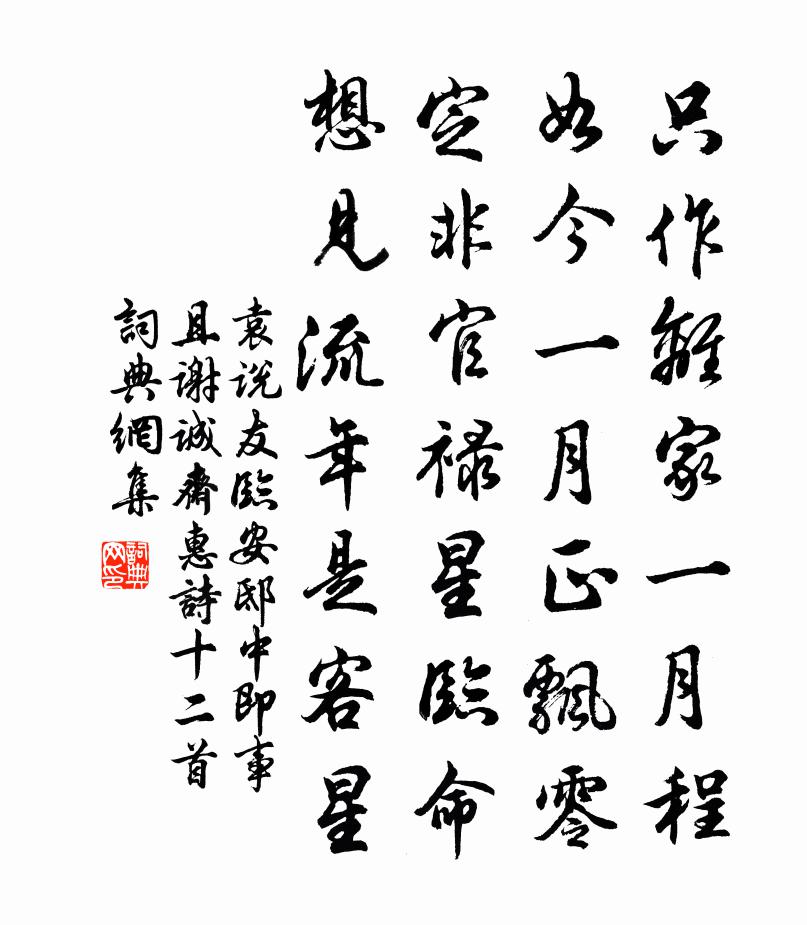 只作離家一月程
如今一月正飄零
定非官禄星臨命
想見流年是客星
袁说友臨安邸中即事
且謝誠齋惠詩十二首
詞典網集
詞典网印